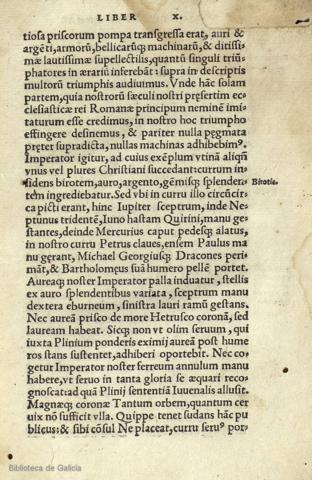 LIBER X.
tiosa priscorum pompa transgressa erat, auri &
argēti, armorū, bellicarūq; machinarū, & ditissi-
mæ lautissimæ supellectilis, quantū singuli trium-
phatores in ærariū inferebāt: supra in descriptis
multorū triumphis audiuimus. Vnde hāc solam
partem, quia nostrorū sæculi nostri pręsertim ec-
clesiasticæ rei Romanæ principum neminē imi-
taturum esse credimus, in nostro hoc triumpho
effingere desinemus, & pariter nulla pęgmata
pręter supradicta, nullas machinas adhibebimꝰ.
Imperator igitur, ad cuius exēplum vtinā aliqñ
vnus vel plures Christiani succedant: currum in-
sidens birotem, auro, argento, gēmisq; splenden-
tem ingrediebatur. Sed vbi in curru illo circūcir-
ca picti erant, hinc Iupiter sceptrum, inde Ne-
ptunus tridentē, Iuno hastam Quirini, manu ge-
stantes, deinde Mercurius caput pedesq; alatus,
in nostro curru Petrus claues, ensem Paulus ma-
nu gerant, Michael Georgiusq; Dracones peri-
māt, & Bartholomęus suā humero pellē portet.
Aureaq; noster Imperator palla induatur, stellis
ex auro splendentibus variata, sceptrum manu
dextera eburneum, sinistra lauri ramū gestans.
Nec aureā prisco de more Hetrusco coronā, sed
lauream habeat. Sicq; non vt olim seruum, qui
iuxta Plinium ponderis eximij aureā post hume
ros stans sustentet, adhiberi oportebit. Nec co-
getur Imperator noster ferreum annulum manu
habere, vt seruo in tanta gloria se æquari reco-
gnoscat: ad quā Plinij sententiā Iuuenalis allusit.
Magnæq; coronæ Tantum orbem, quantum cer
uix nō sufficit vlla. Quippe tenet sudans hāc pu
blicus: & sibi cōsul Ne placeat, curru seruꝰ por-
Birotis.
Biblioteca de Galicia